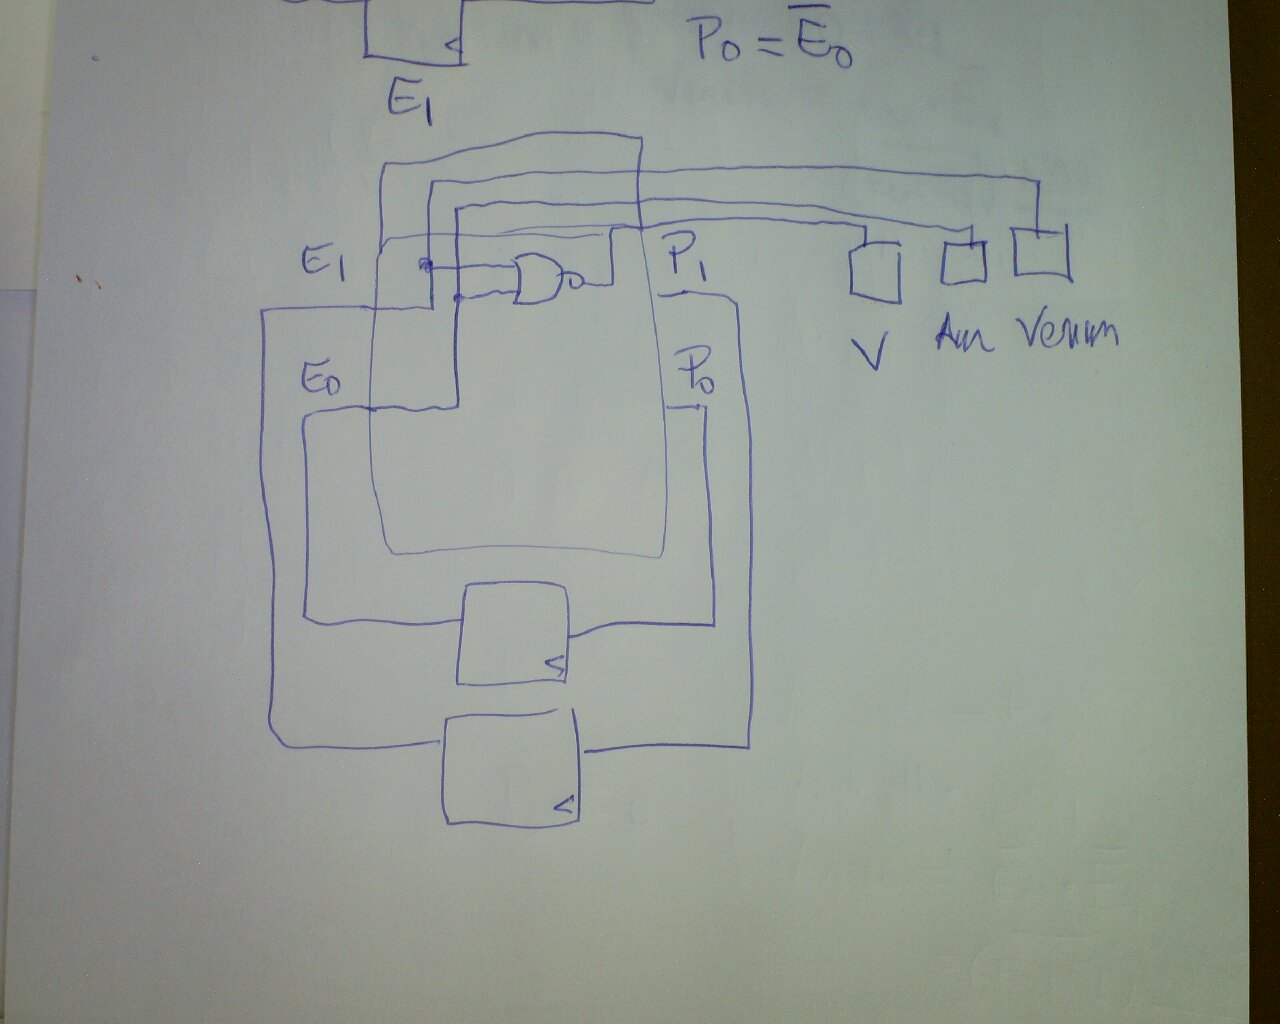 P0 = E̅0
E1
E1
P1
E0
P0
V
Am
Verm